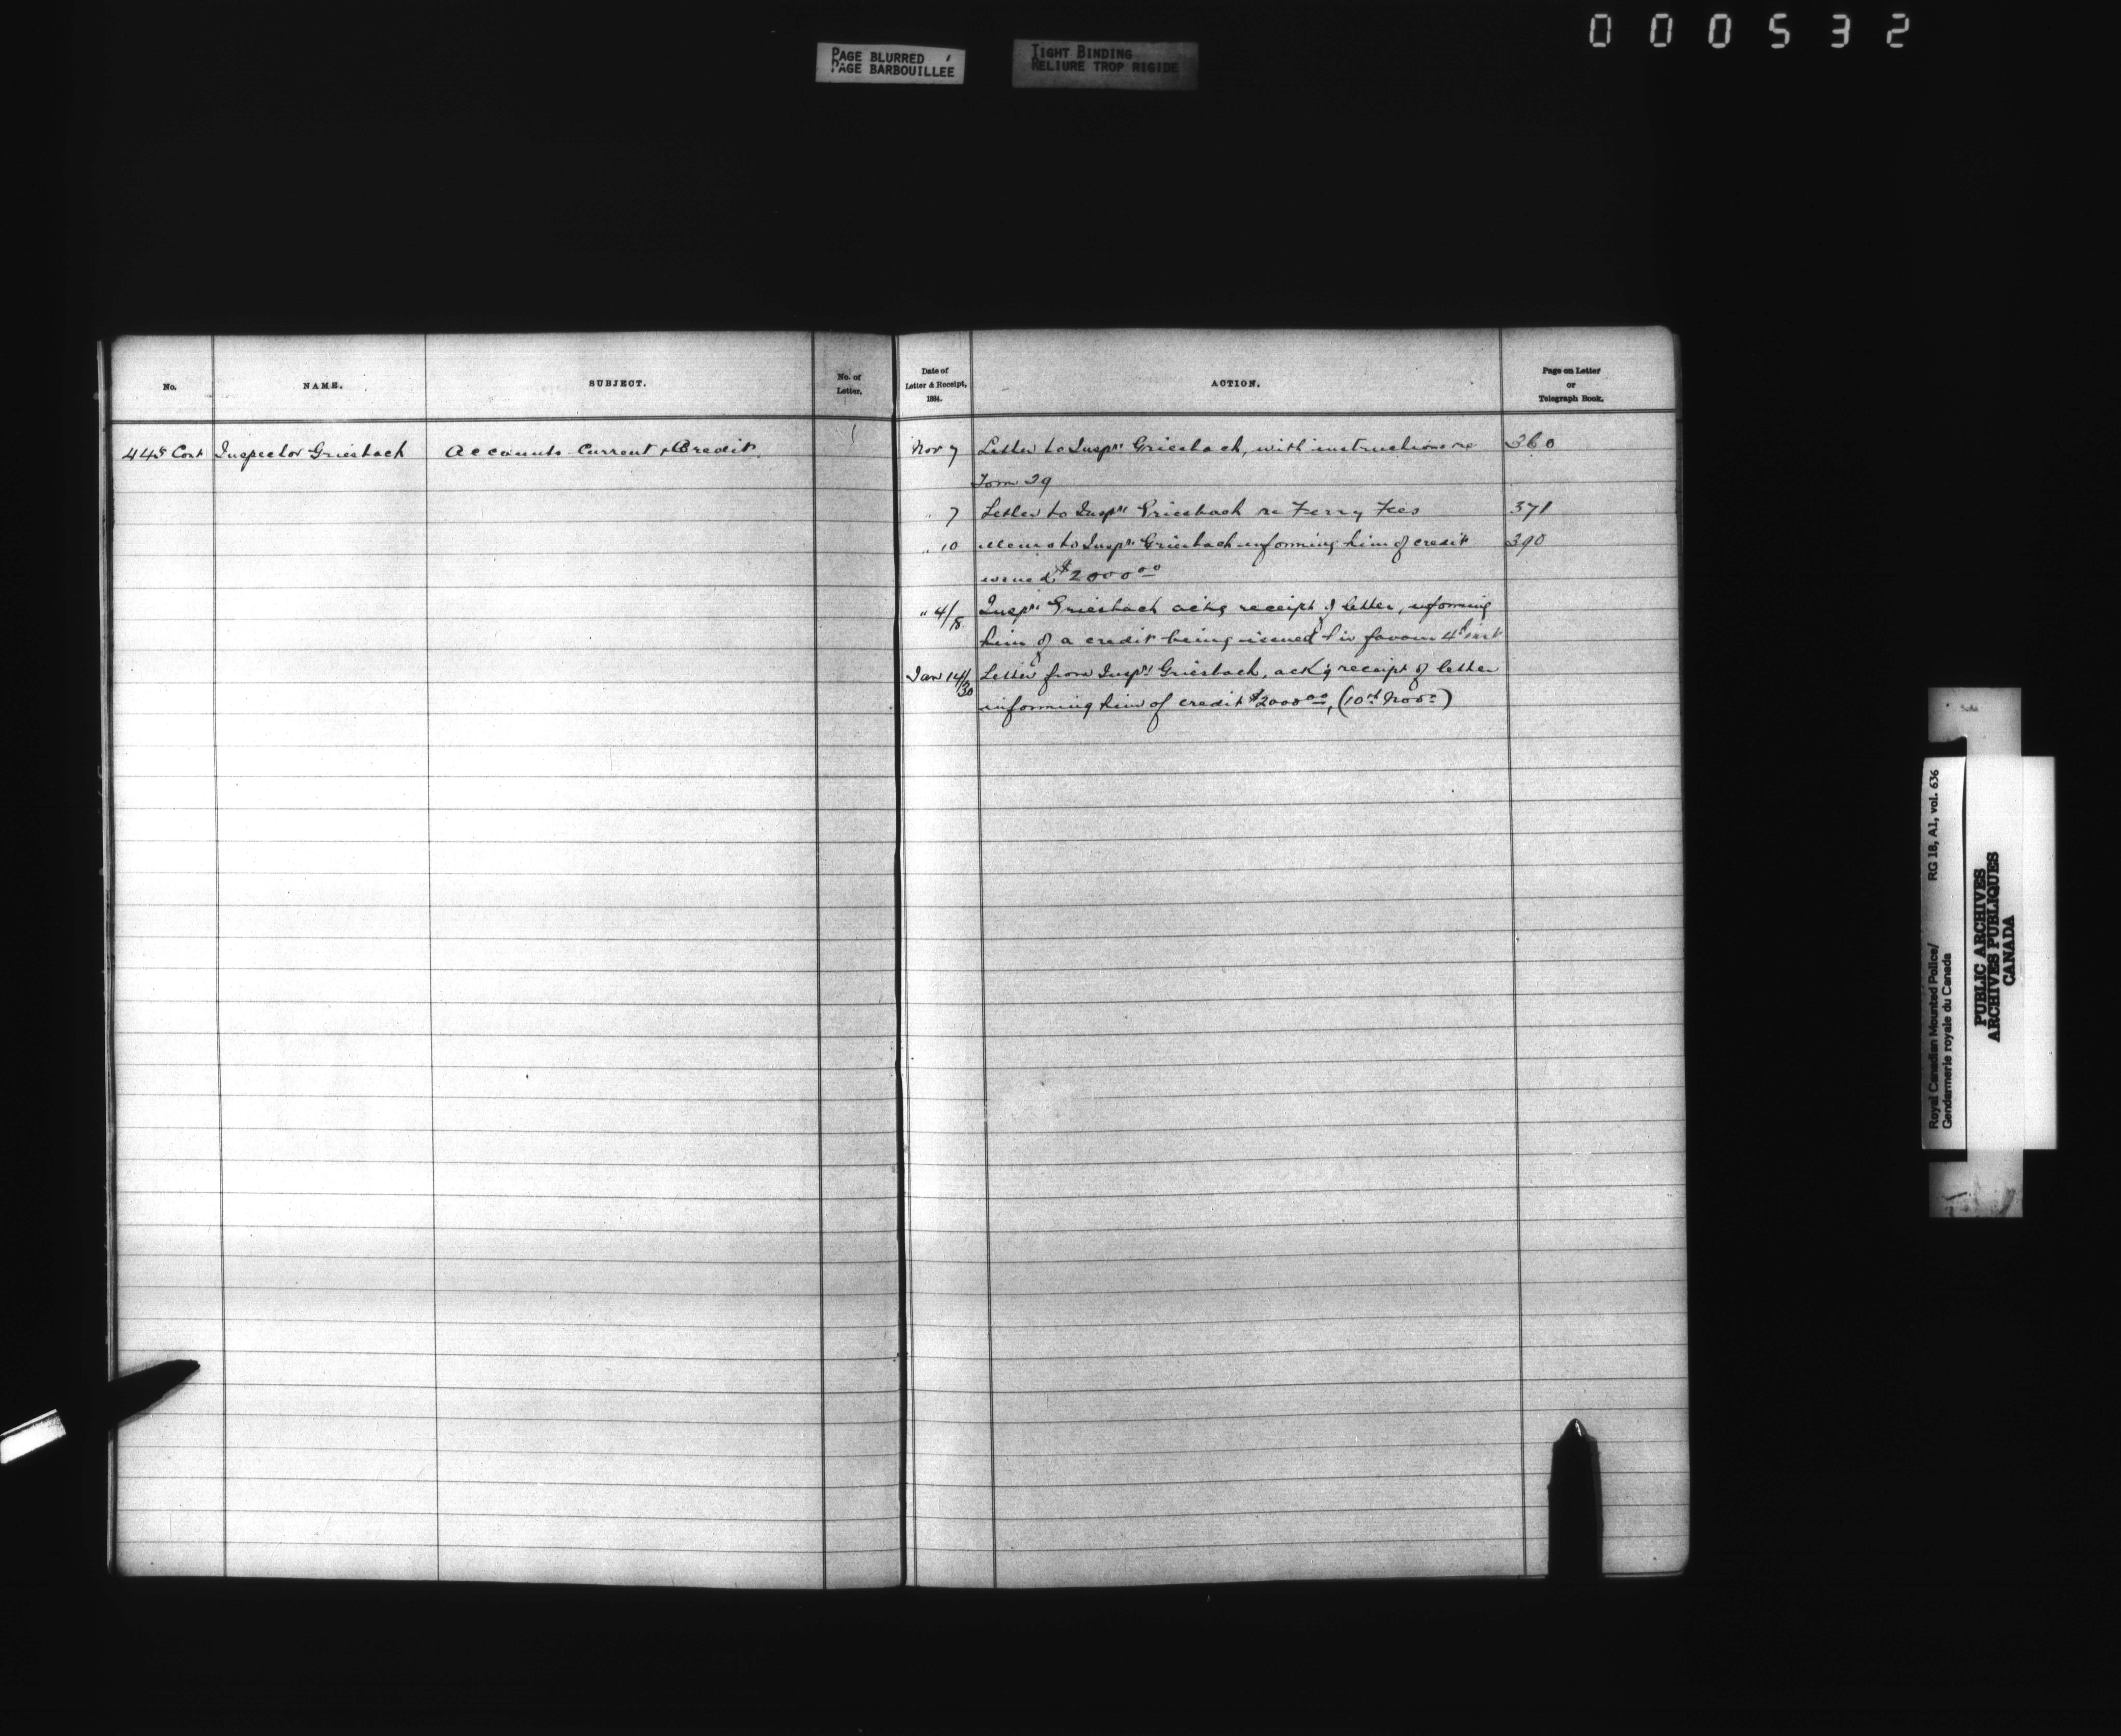 000532
PAGE BLURRED
PAGE BARBOUILLEE
TIGHT BINDING
RELIURE TROP RIGIDE
No.
NAME.
SUBJECT.
No. of
Letter.
Date of
Letter & Receipt,
1884.
ACTION.
Page on Letter
or
Telegraph Book.
445 Cont Inspector Griesbach Accounts Current & Credit.
Nov 7 Letter to Inspr Griesbach, with instructions re 360
Form 29
" 7 Letter to Inspr Griesbach re Ferry Fees 371
" 10 Memo to Inspr Griesbach informing him of credit 390
issued $2000 00
" 4/8 Inspr Griesbach ackg receipt of letter, informing
him of a credit being issued in favour 4th inst
Jan 14/30 Letter from Inspr Griesbach, ack'g receipt of letter
informing him of credit $2000 00, (10th Nov)
Royal Canadian Mounted Police/
Gendarmerie royale du Canada
RG 18, A1, vol. 636
PUBLIC ARCHIVES
ARCHIVES PUBLIQUES
CANADA